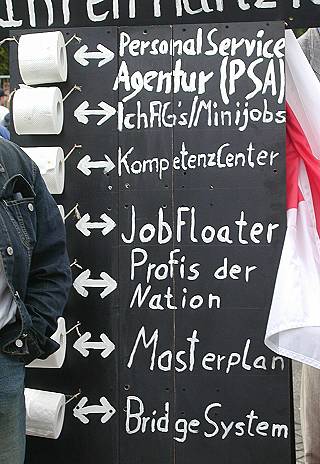 Personal Service
Agentur (PSA)
IchAG's/Minijobs
KompetenzCenter
JobFloater
Profis der
Nation
Masterplan
BridgeSystem